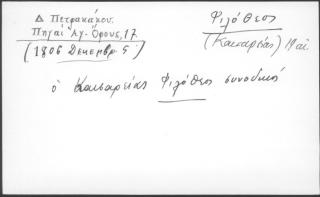 Δ Πετρακάκου.
Πηγαί Ἁγ. Ὄρους, 17
(1806 Δεκεμβρ 5)
Φιλόθεος
(Καισαρείας) 19 αἰ
ὁ Καισαρείας Φιλόθεος συνοδικός